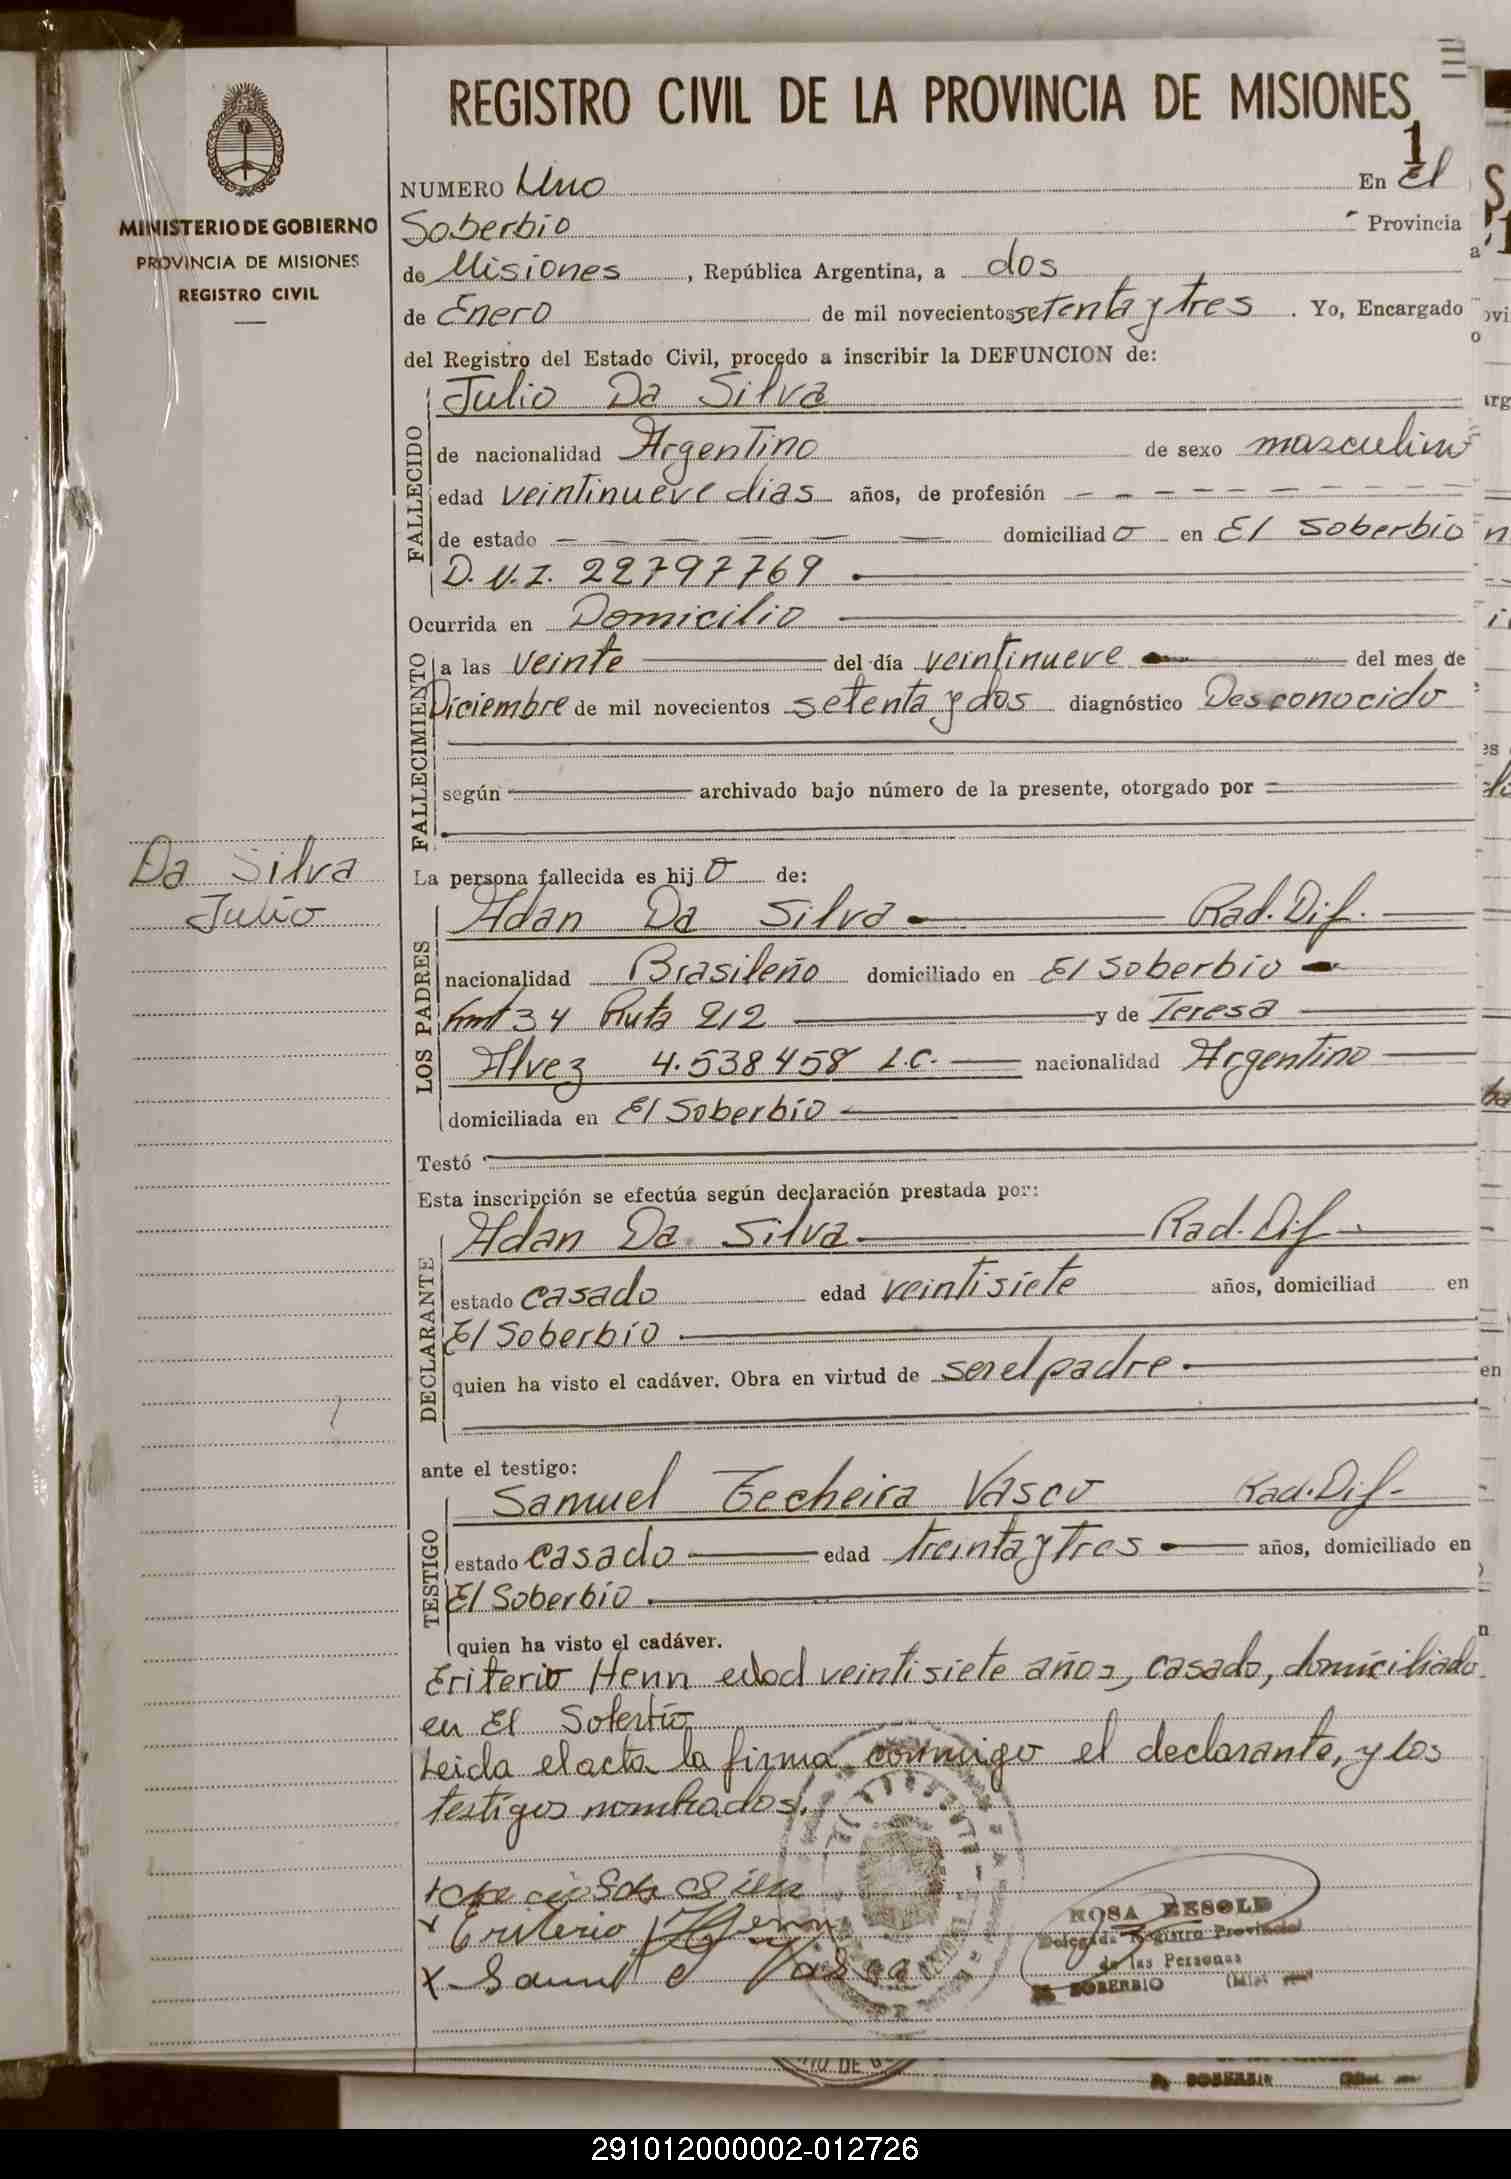 REGISTRO CIVIL DE LA PROVINCIA DE MISIONES
1
MINISTERIO DE GOBIERNO
PROVINCIA DE MISIONES
REGISTRO CIVIL
NUMERO Uno En El
Soberbio Provincia
de Misiones, República Argentina, a dos
de Enero de mil novecientos setenta y tres. Yo, Encargado
del Registro del Estado Civil, procedo a inscribir la DEFUNCION de:
FALLECIDO
Julio Da Silva
de nacionalidad Argentino de sexo masculino
edad veintinueve dias años, de profesión – – – – – – – –
de estado – – – – – – domiciliado en El Soberbio
D.N.I. 22797769
Ocurrida en Domicilio
FALLECIMIENTO
a las veinte del día veintinueve del mes de
Diciembre de mil novecientos setenta y dos diagnóstico Desconocido
según archivado bajo número de la presente, otorgado por
Da Silva
Julio
La persona fallecida es hijo de:
LOS PADRES
Adan Da Silva Rad. Dif.
nacionalidad Brasileño domiciliado en El Soberbio
km 34 Ruta 212 y de Teresa
Alvez 4.538458 L.C. nacionalidad Argentino
domiciliada en El Soberbio
Testó
Esta inscripción se efectúa según declaración prestada por:
DECLARANTE
Adan Da Silva Rad. Dif
estado casado edad veintisiete años, domiciliad en
El Soberbio
quien ha visto el cadáver. Obra en virtud de ser el padre
ante el testigo:
TESTIGO
Samuel Techeira Vasco Rad. Dif.
estado casado edad treinta y tres años, domiciliado en
El Soberbio
quien ha visto el cadáver.
Eriterio Henn edad veintisiete años, casado, domiciliado
en El Soberbio
Leida el acta la firma conmigo el declarante, y los
testigos nombrados.
Eriterio Henn
ROSA BESOLD
Delegada Registro Provincial
de las Personas
EL SOBERBIO
291012000002-012726